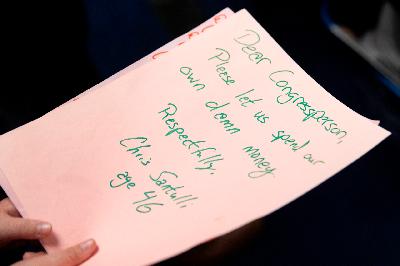 Dear Congressperson,
Please let us spend our
own damn money
Respectfully,
Chris Santulli
age 46